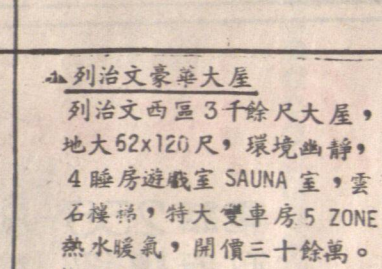 列治文豪華大屋
列治文西區3千餘尺大屋，
地大62x120尺，環境幽靜，
4睡房遊戲室SAUNA室，雲
石樓梯，特大雙車房5 ZONE
熱水暖氣，開價三十餘萬。